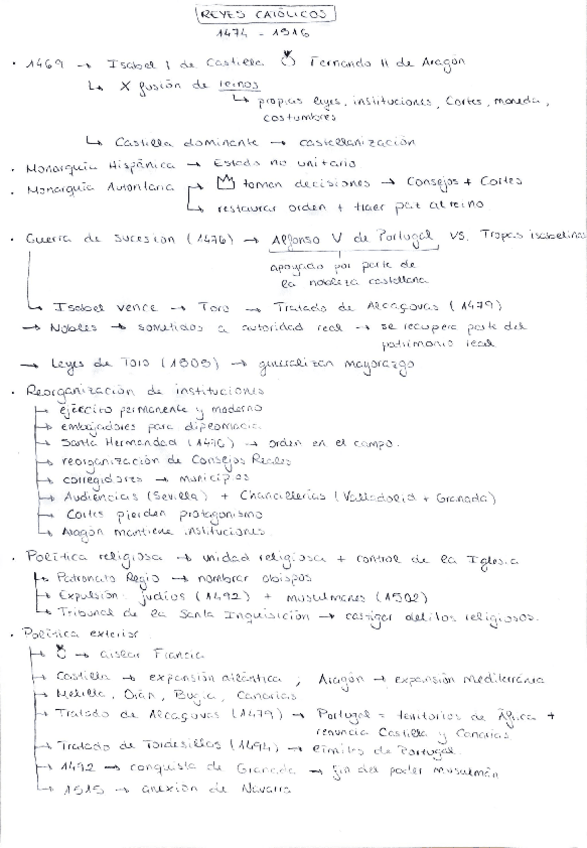 REYES CATÓLICOS
1474 - 1516
· 1469 → Isabel I de Castilla Fernando II de Aragón
↳ X fusión de reinos
↳ propias leyes, instituciones, Cortes, moneda,
costumbres
↳ Castilla dominante → castellanización
· Monarquía Hispánica → Estado no unitario
· Monarquía Autoritaria → toman decisiones → Consejos + Cortes
↳ restaurar orden + traer paz al reino
· Guerra de sucesión (1476) → Alfonso V de Portugal vs. Tropas isabelinas
apoyado por parte de
la nobleza castellana
↳ Isabel vence → Toro → Tratado de Alcaçovas (1479)
→ Nobles → sometidos a autoridad real → se recupera parte del
patrimonio real
→ Leyes de Toro (1505) → generalizan mayorazgo
· Reorganización de instituciones
→ ejército permanente y moderno
→ embajadores para diplomacia
→ Santa Hermandad (1476) → orden en el campo.
→ reorganización de Consejos Reales
→ corregidores → municipios
→ Audiencias (Sevilla) + Chancillerías (Valladolid + Granada)
→ Cortes pierden protagonismo
↳ Aragón mantiene instituciones
· Política religiosa → unidad religiosa + control de la Iglesia
→ Patronato Regio → nombrar obispos
→ Expulsión: judíos (1492) + musulmanes (1502)
↳ Tribunal de la Santa Inquisición → castigar delitos religiosos.
· Política exterior
→ aislar Francia
→ Castilla → expansión atlántica ; Aragón → expansión mediterránea
→ Melilla, Orán, Bugía, Canarias
→ Tratado de Alcaçovas (1479) → Portugal = territorios de África +
renuncia Castilla y Canarias
→ Tratado de Tordesillas (1494) → límites de Portugal
→ 1492 → conquista de Granada → fin del poder musulmán
↳ 1515 → anexión de Navarra